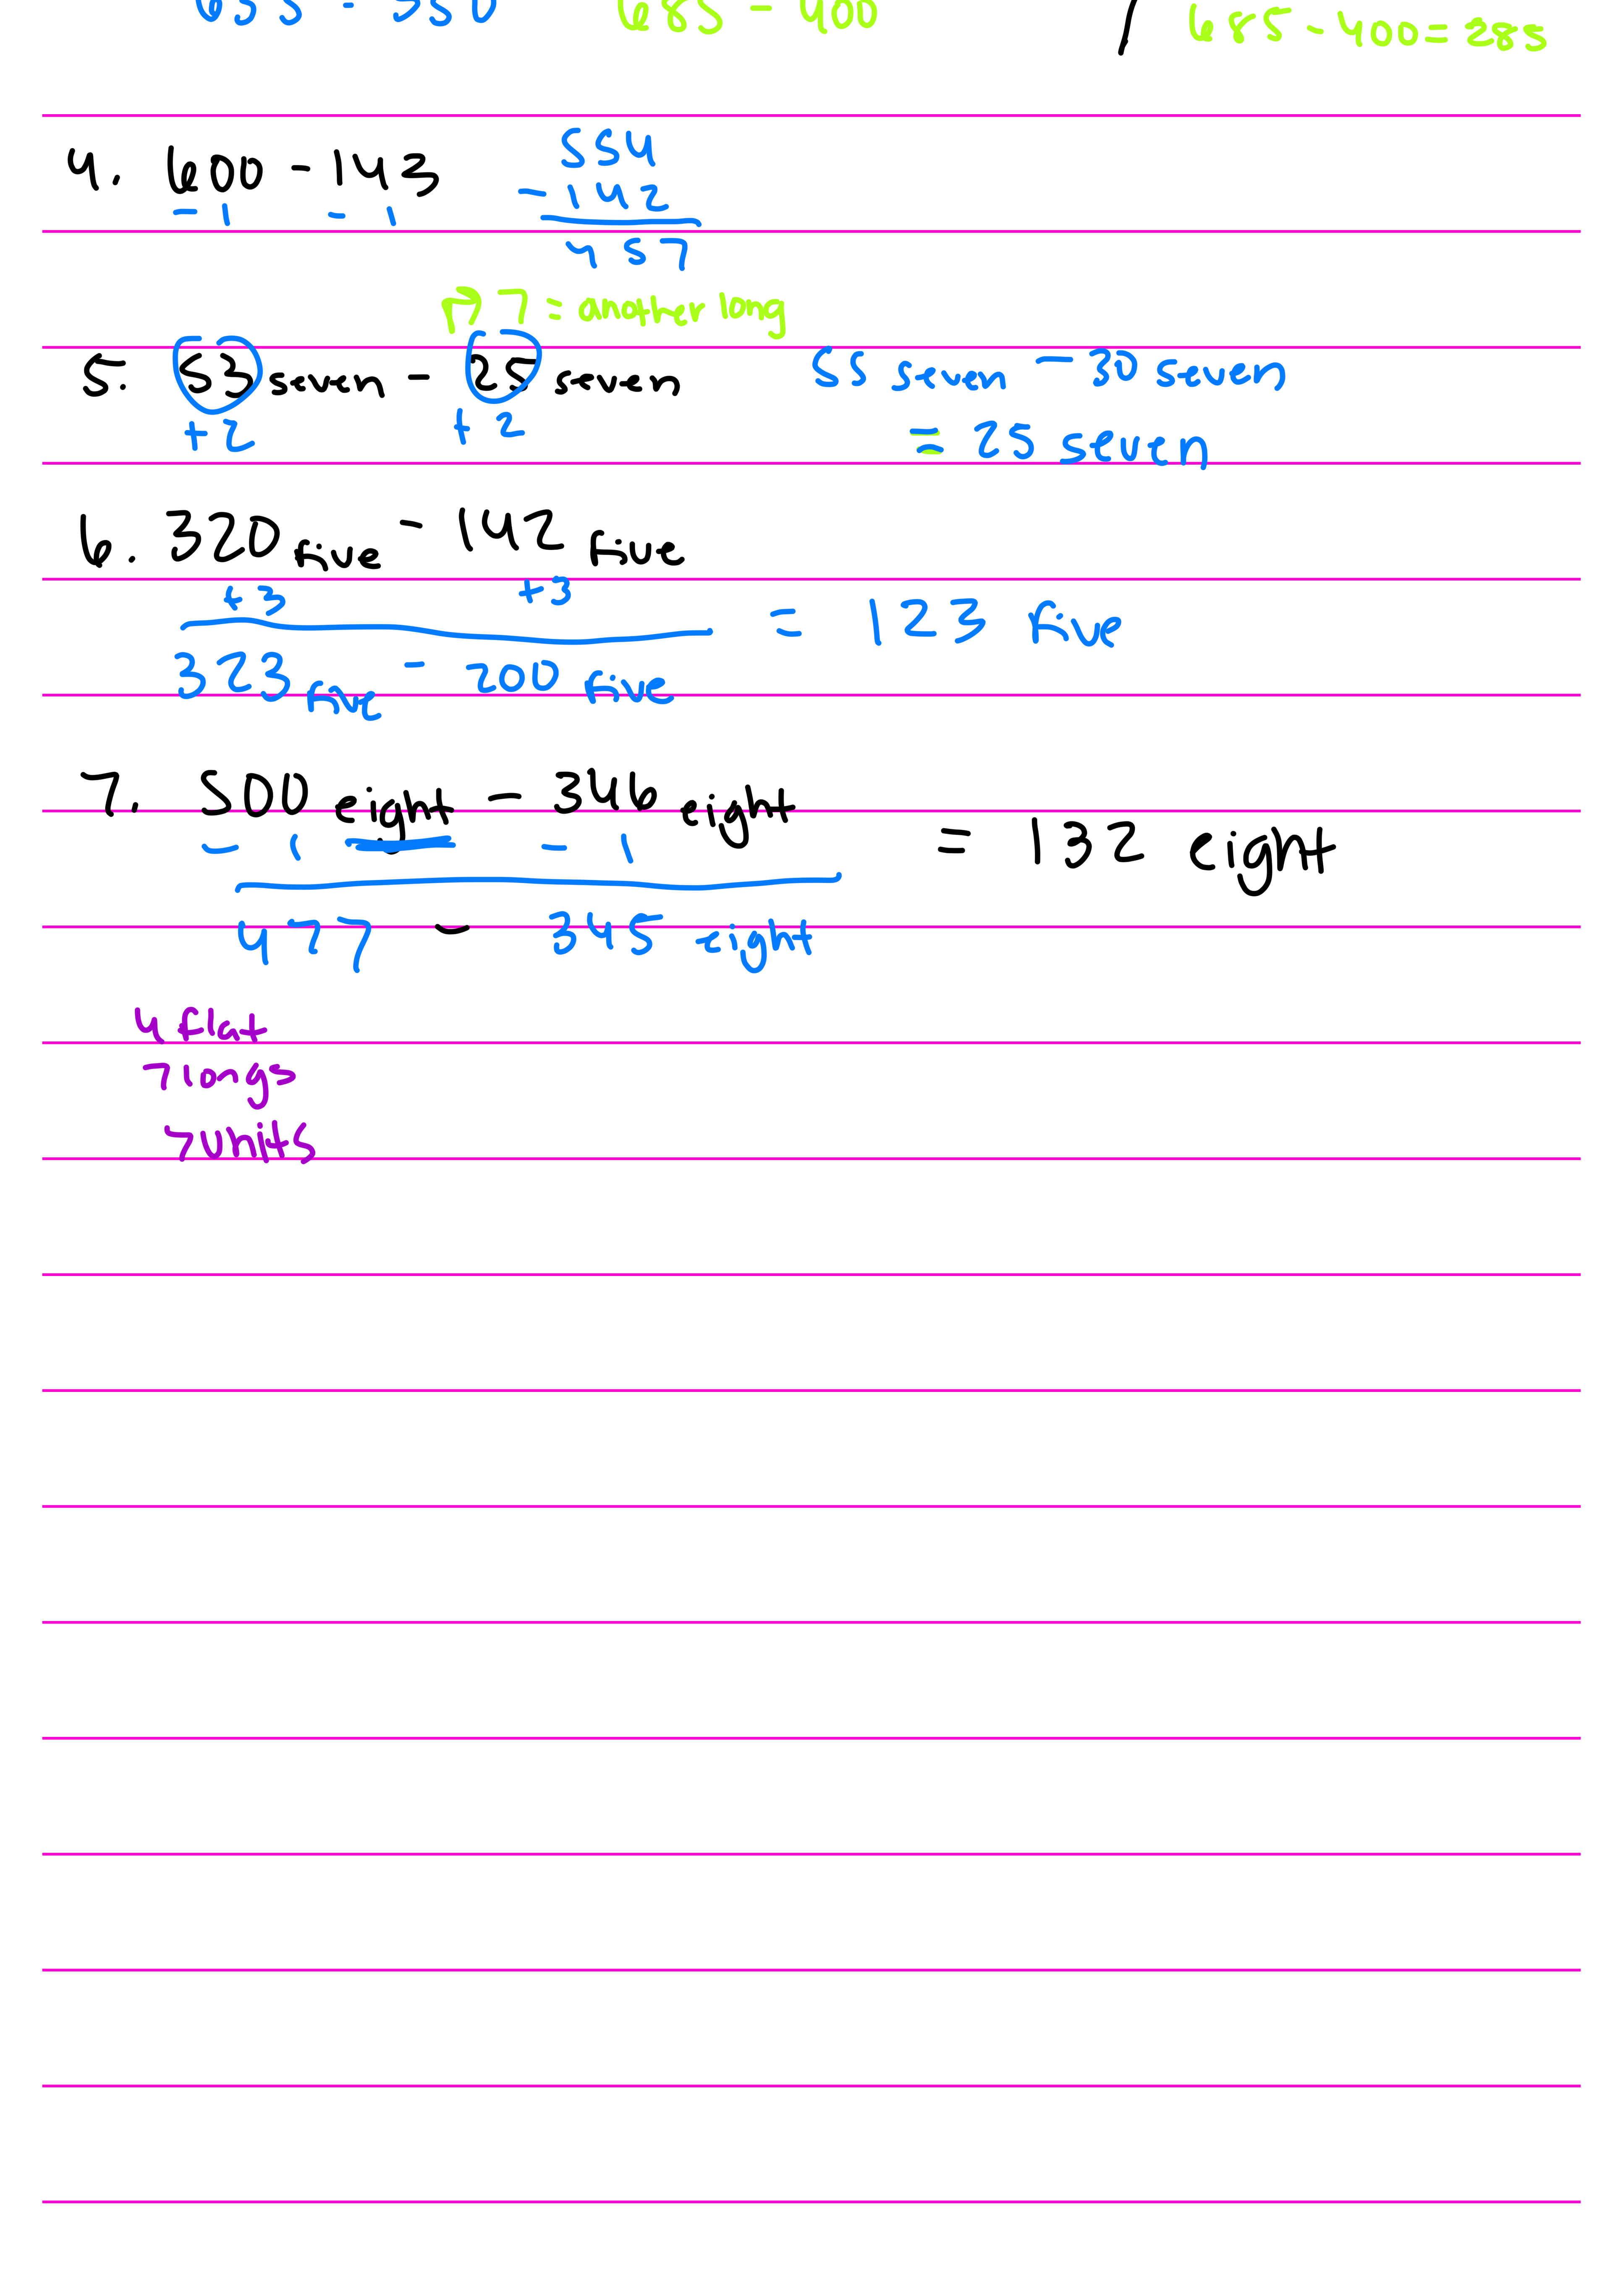 655 - 350 685 - 400 / 685 - 400 = 285
4. 600 - 143 554
- 1 - 1 - 142
457
↗ 7 = another long
5. 53 seven - 25 seven 55 seven - 30 seven
+2 +2 = 25 seven
6. 320 five - 142 five
+3 +3 = 123 five
323 five - 200 five
7. 500 eight - 346 eight
- 1 - 1 = 132 eight
477 - 345 eight
4 flat
7 longs
7 units